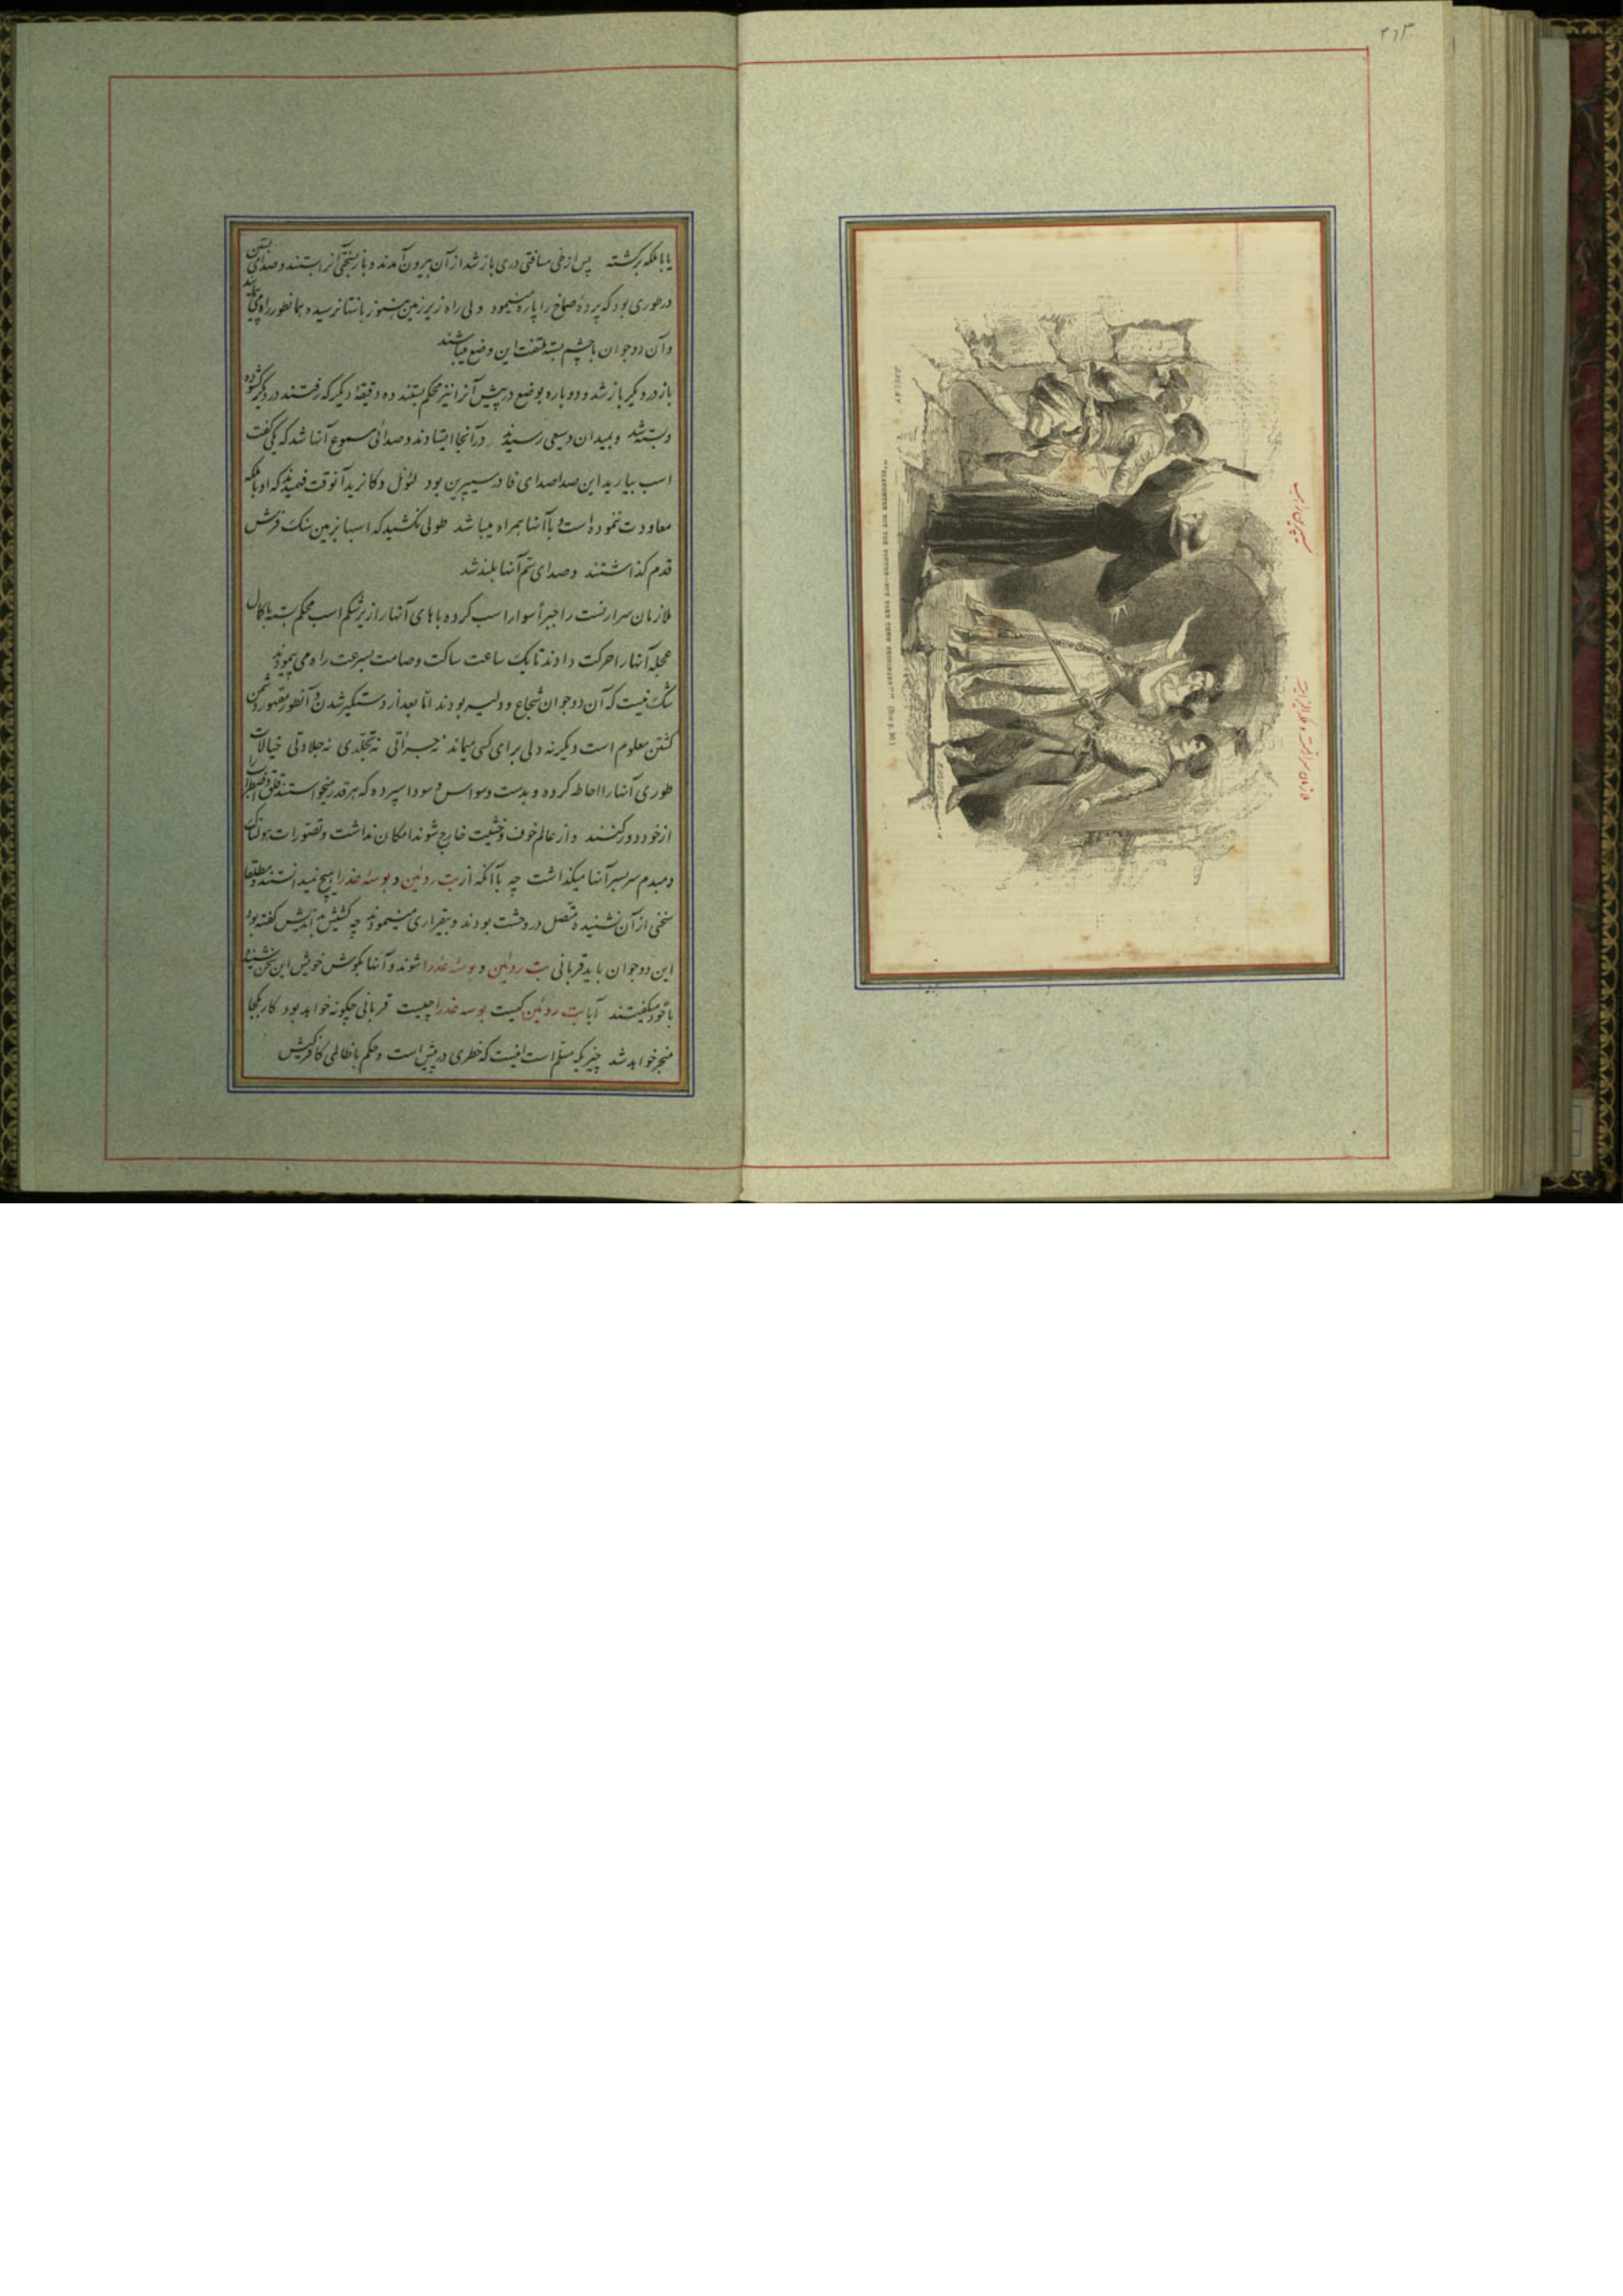 ۲۱۳
یا با ملکه برگشته پس از طی مسافتی دری باز شد از آن بیرون آمدند و باز بسختی آنرا بستند و صدای بستن
در طوری بود که پردهٔ صماخ را پاره مینمود ولی راه زیر زمین هنوز بانتها نرسیده همانطور راه می
و آن دو جوان با چشم بسته ملتفت این وضع میباشند
باز در دیگر باز شد و دوباره بوضع در پیش آنرا نیز محکم بستند ده دقیقهٔ دیگر که رفتند در دیگر گشوده
و بسته شد و بمیدان وسیعی رسیدند در آنجا ایستادند و صدائی مسموع آنها شد که یکی گفت
اسب بیارید این صدا صدای فادر سیپرین بود لئونل و کانرید آنوقت فهمیدند که او با ملکه
معاودت ننموده است و با آنها همراه میباشد طولی نکشید که اسبها بزمین سنگ فرش
قدم گذاشتند و صدای سم آنها بلند شد
ملازمان سرارنست را جبراً سوار اسب کرده پاهای آنها را از زیر شکم اسب محکم بسته با کمال
عجله آنها را حرکت دادند تا یک ساعت ساکت و صامت بسرعت راه می پیمودند
شک نیست که آن دو جوان شجاع و دلیر بودند امّا بعد از دستگیر شدن و آنطور مقهور دشمن
گشتن معلوم است دیگر نه دلی برای کسی میماند نه جرأتی نه تجلّدی نه جلادتی خیالات
طوری آنها را احاطه کرده و بدست وسواس و سودا سپرده که هر قدر میخواستند قلق و اضطراب را
از خود دور کنند و از عالم خوف و خشیت خارج شوند امکان نداشت و تصّورات هولناک
دمبدم سر بسر آنها میگذاشت چه با آنکه از بت روئین و بوسهٔ عذرا هیچ نمیدانستند و مطلقا
سخنی از آن نشنیده متّصل در وحشت بودند و بیقراری مینمودند چه کشیش بداندیش گفته بود
این دو جوان باید قربانی بت روئین و بوسهٔ عذرا شوند و آنها بگوش خویش این سخن شنیده
با خود میگفتند آیا بت روئین کیست بوسه عذرا چیست قربانی چگونه خواهد بود کار بکجا
منجر خواهد شد چیزیکه مسلّم است اینست که خطری در پیش است و حکم با ظالمی کافر کیش